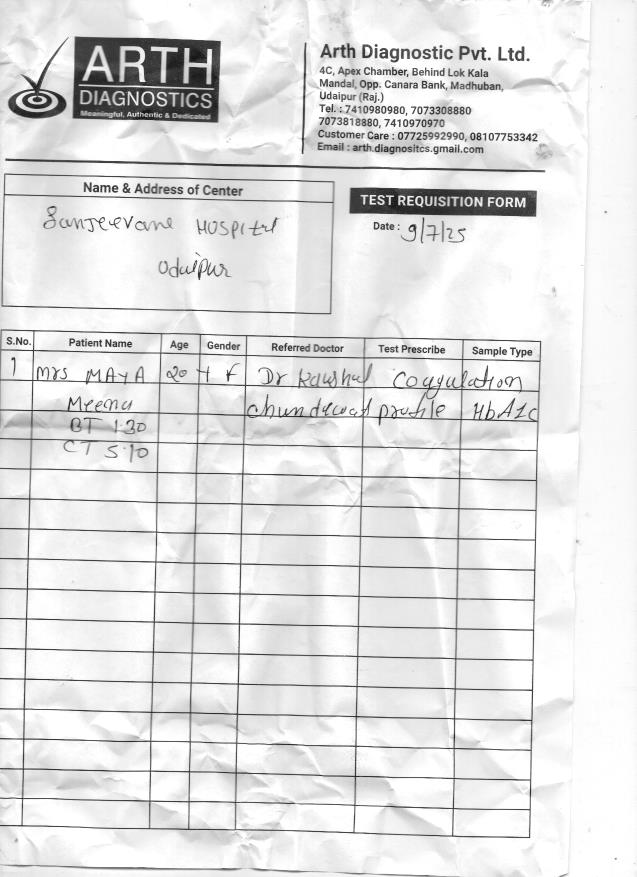 ARTH
DIAGNOSTICS
Meaningful, Authentic & Dedicated
Arth Diagnostic Pvt. Ltd.
4C, Apex Chamber, Behind Lok Kala
Mandal, Opp. Canara Bank, Madhuban,
Udaipur (Raj.)
Tel. : 7410980980, 7073308880
7073818880, 7410970970
Customer Care : 07725992990, 08107753342
Email : arth.diagnositcs.gmail.com
Name & Address of Center
Sanjeevane HOSPital
Udaipur
TEST REQUISITION FORM
Date : 9/7/25
S.No. Patient Name Age Gender Referred Doctor Test Prescribe Sample Type
1 Mrs MAYA 20 Y F Dr Kaushal Coagulation
Meena Chundawat profile HbA1c
BT 1.30
CT 5.10